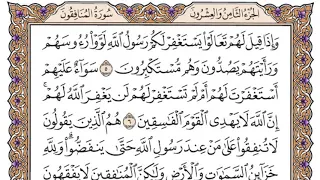 سُورَةُ المُنَافِقُونَ
الجُزْءُ الثَّامِنُ وَالعِشْرُونَ
وَإِذَا قِيلَ لَهُمْ تَعَالَوْا يَسْتَغْفِرْ لَكُمْ رَسُولُ اللَّهِ لَوَّوْا رُءُوسَهُمْ
وَرَأَيْتَهُمْ يَصُدُّونَ وَهُم مُّسْتَكْبِرُونَ ٥ سَوَاءٌ عَلَيْهِمْ
أَسْتَغْفَرْتَ لَهُمْ أَمْ لَمْ تَسْتَغْفِرْ لَهُمْ لَن يَغْفِرَ اللَّهُ لَهُمْ
إِنَّ اللَّهَ لَا يَهْدِي الْقَوْمَ الْفَاسِقِينَ ٦ هُمُ الَّذِينَ يَقُولُونَ
لَا تُنفِقُوا عَلَىٰ مَنْ عِندَ رَسُولِ اللَّهِ حَتَّىٰ يَنفَضُّوا وَلِلَّهِ
خَزَائِنُ السَّمَاوَاتِ وَالْأَرْضِ وَلَٰكِنَّ الْمُنَافِقِينَ لَا يَفْقَهُونَ